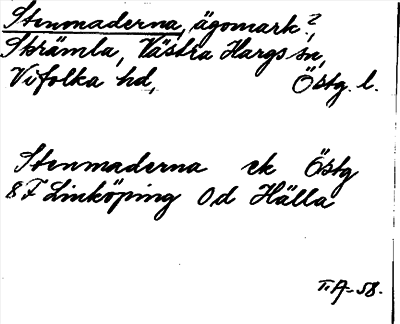 Stenmaderna, ägomark?,
Skrämla, Västra Hargs sn,
Vifolka hd, Östg. l.
Stenmaderna ek Östg
8F Linköping 0d Hälla
T.A-58.